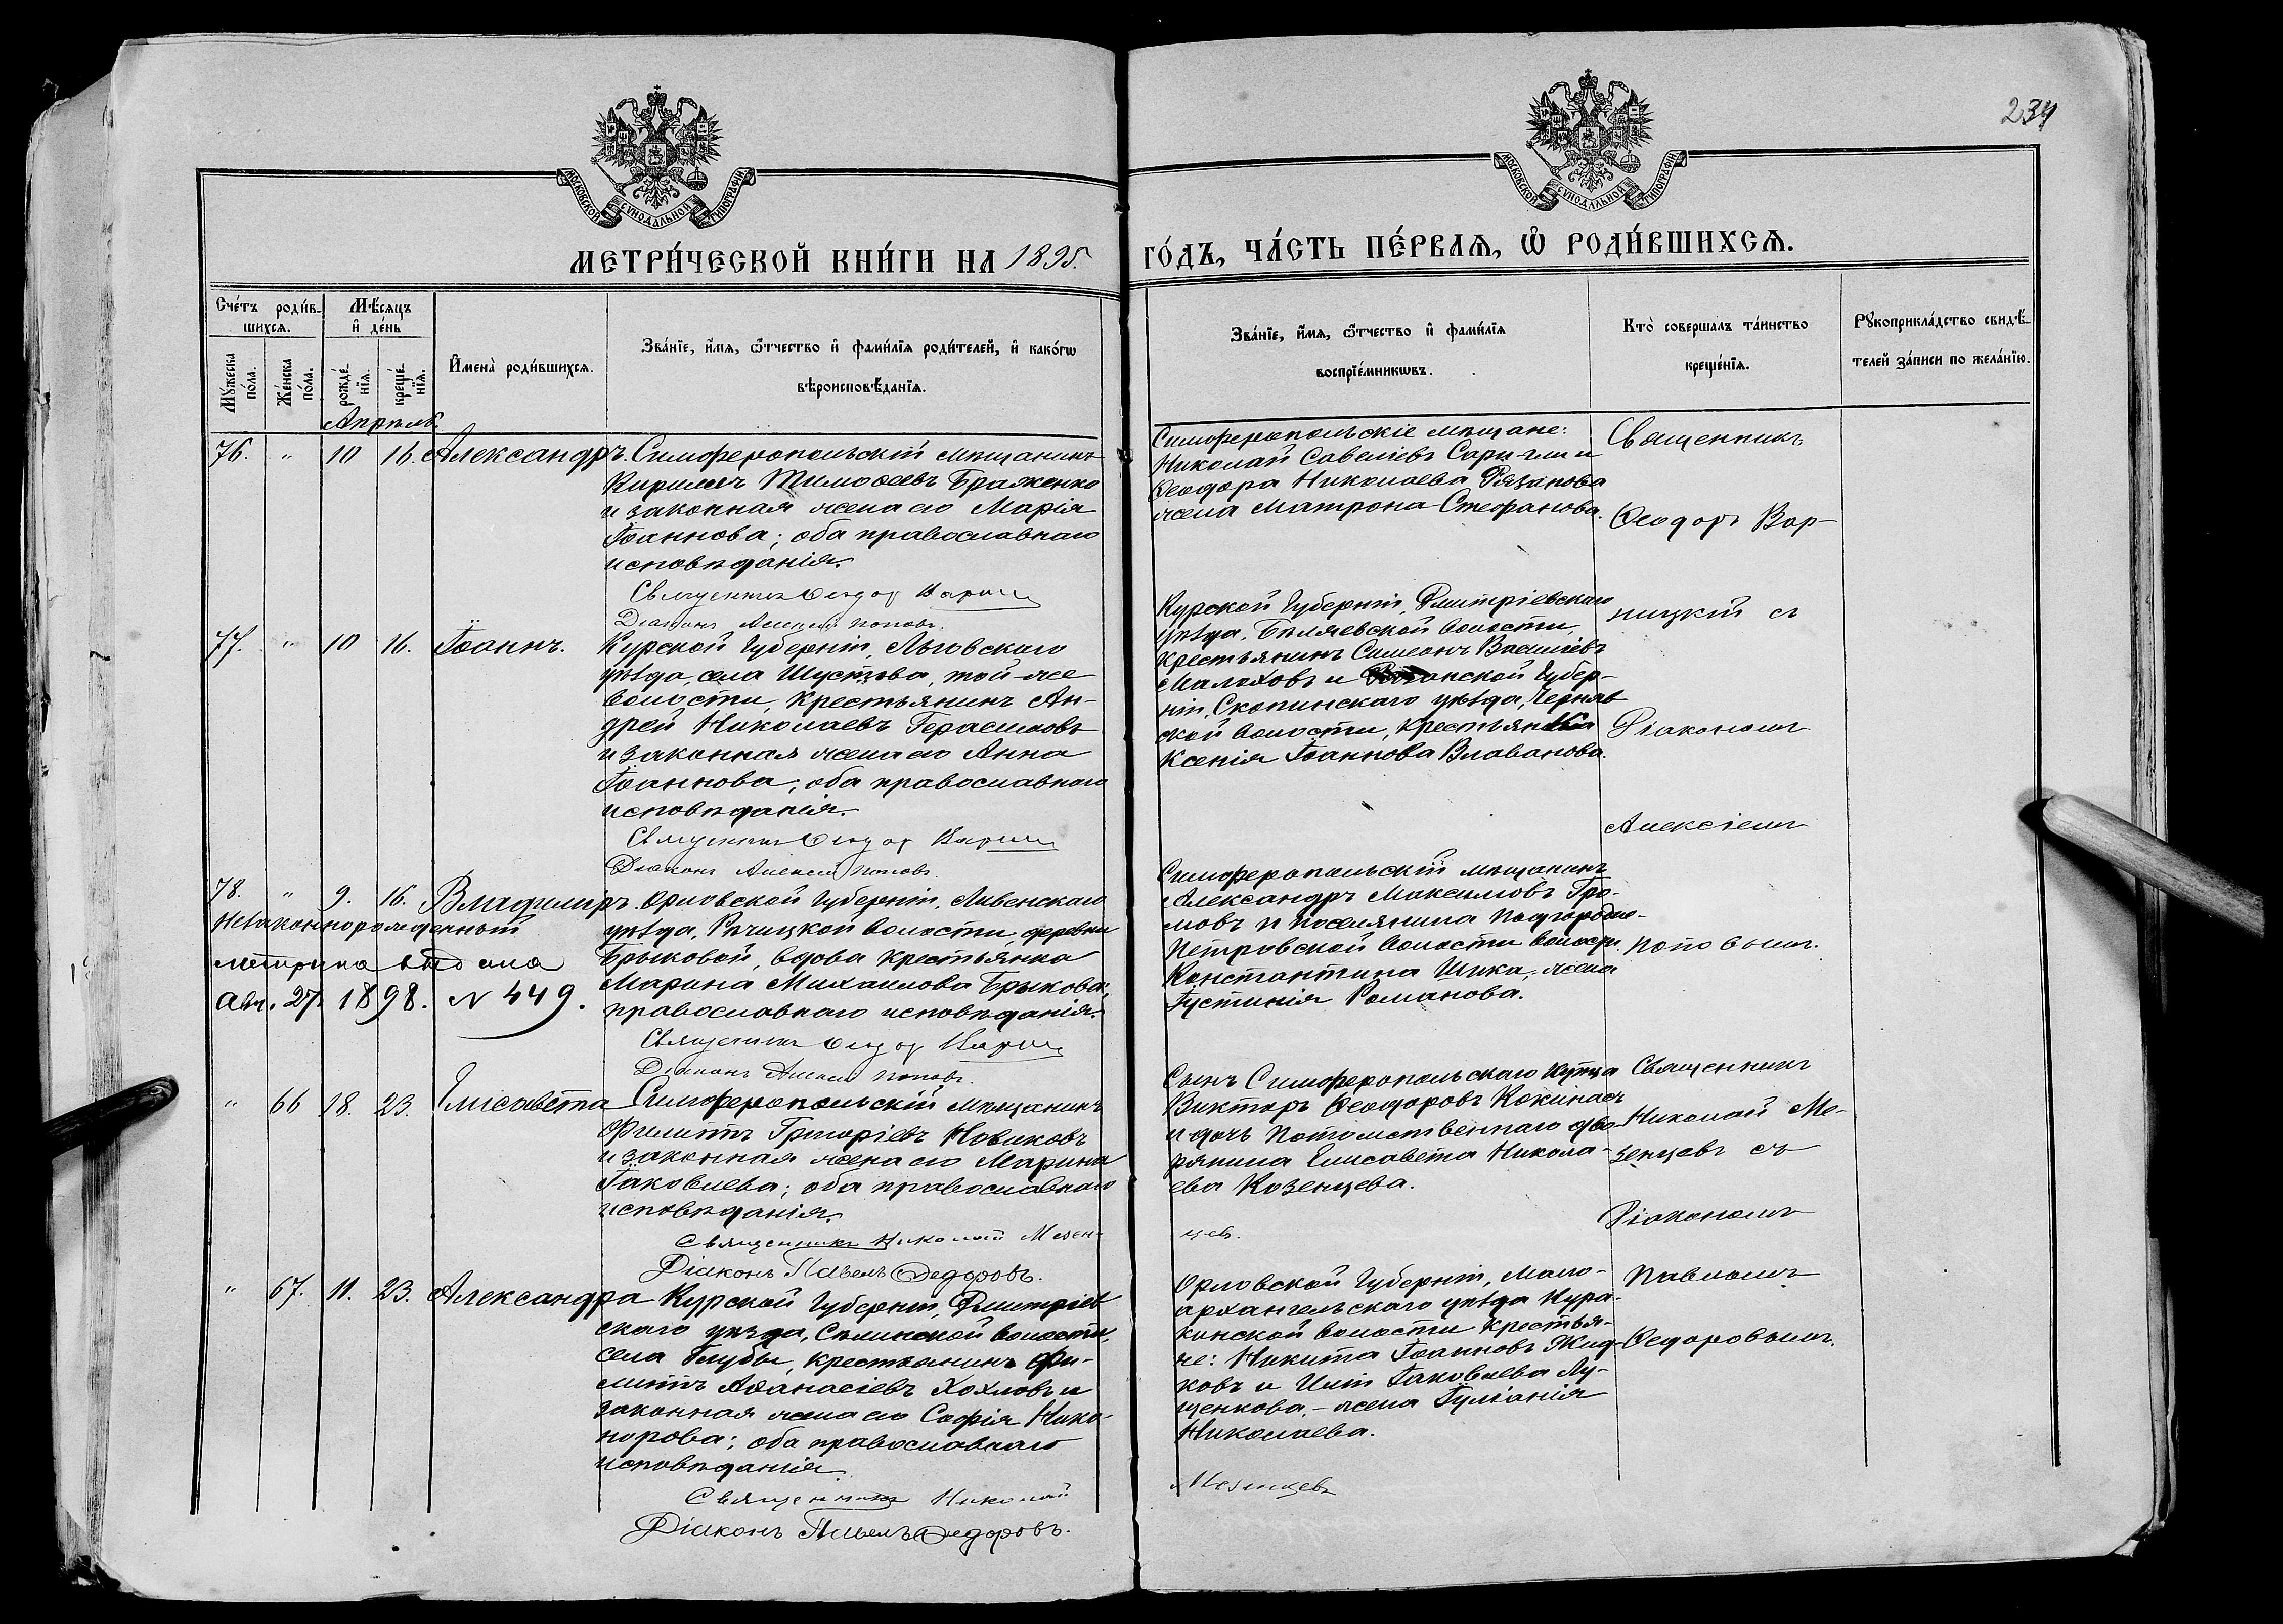 234
МОСКОВСКОЙ СУНОДАЛЬНОЙ ТИПОГРАФІИ
МОСКОВСКОЙ СУНОДАЛЬНОЙ ТИПОГРАФІИ
МЕТРИ́ЧЕСКОЙ КНИ́ГИ НА 1895.
ГО́ДЪ, ЧА́СТЬ ПЕ́РВАЯ, Ѡ РОДИ́ВШИХСЯ.
Сче́тъ роди́в-
шихсѧ.
Мꙋ́жеска по́ла.
Же́нска по́ла.
Мѣ́сѧцъ и де́нь
рожде́-нїѧ.
креще́-нїѧ.
Имена̀ роди́вшихсѧ.
Зва́нїе, и́мѧ, ѻ́тчество и фами́лїѧ роди́телей, и како́гѡ
вѣроисповѣ́данїѧ.
Зва́нїе, и́мѧ, ѻ́тчество и фами́лїѧ
воспрїе́мникѡвъ.
Кто̀ соверша́лъ та́инство
креще́нїѧ.
Рꙋкоприкла́дство свидѣ́-
телей за́писи по жела́нїю.
Апрѣль.
76. " 10 16. Александръ.
Симферопольскій мѣщанинъ
Кириллъ Тимоѳеевъ Браженко
и законная жена его Марія
Іоаннова; оба православнаго
исповѣданія.
Священникъ Ѳеодор
Діаконъ Алексій Поповъ.
Симферопольскіе мѣщане:
Николай Савеліевъ и
Ѳеодора Николаева Рязанова
жена Матрона Стефанова.
77. " 10 16. Іоаннъ.
Курской Губерніи, Льговскаго
уѣзда, села той-же
волости, крестьянинъ Ан-
дрей Николаевъ Герасимовъ
и законная жена его Анна
Іоаннова; оба православнаго
исповѣданія.
Священникъ Ѳеодор
Діаконъ Алексій Поповъ.
Курской Губерніи, Дмитріевскаго
уѣзда, Бѣляевской волости,
крестьянинъ Симеонъ Василіевъ
Малоховъ и Губер-
ніи, Скопинскаго уѣзда, Черняв-
ской волости, крестьянка
Ксенія Іоаннова
78. " 9. 16. Владимиръ.
Незаконнорожденный
метрика выдана
Авг. 27. 1898. N 449.
Орловской Губерніи, Ливенскаго
уѣзда, Рѣчицкой волости, деревни
Брыковой, вдова крестьянка
Марина Михаилова Брыкова,
православнаго исповѣданія.
Священникъ Ѳеодор
Діаконъ Алексій Поповъ.
Симферопольскій мѣщанинъ
Александръ Максимовъ Гро-
мовъ и поселянина Подгородне-
Петровской волости
Константина Шика, жена
Іустинія Романова.
Священникъ
Ѳеодоръ Вар-
ницкій съ
Діакономъ
Алексіемъ
Поповымъ.
" 66 18. 23. Елисавета
Симферопольскій мѣщанинъ
Филиппъ Григоріевъ Новиковъ
и законная жена его Марина
Іаковлева; оба православнаго
исповѣданія.
Священникъ Николай Мезен-
цев.
Діаконъ Павелъ Ѳедоровъ.
Сынъ Симферопольскаго купца
Викторъ Ѳеодоровъ
и дочь потомственнаго дво-
рянина Елисавета Никола-
ева Козенцева.
" 67. 11. 23. Александра
Курской Губерніи, Дмитріев
скаго уѣзда, Селинской волости,
села Глубы, крестьянинъ Фи-
липпъ Аѳанасіевъ Хохловъ и
законная жена его Софія Нико-
норова; оба православнаго
исповѣданія.
Священникъ Николай
Мезенцевъ
Діаконъ Павелъ Ѳедоровъ.
Орловской Губерніи, Мало-
архангельскаго уѣзда Кура-
кинской волости крестья-
не: Никита Іоанновъ Жид-
ковъ и Иліи Іаковлева Лу-
ценкова, - жена Іуліанія
Николаева.
Священникъ
Николай Ме-
зенцевъ съ
Діакономъ
Павломъ
Ѳедоровымъ.